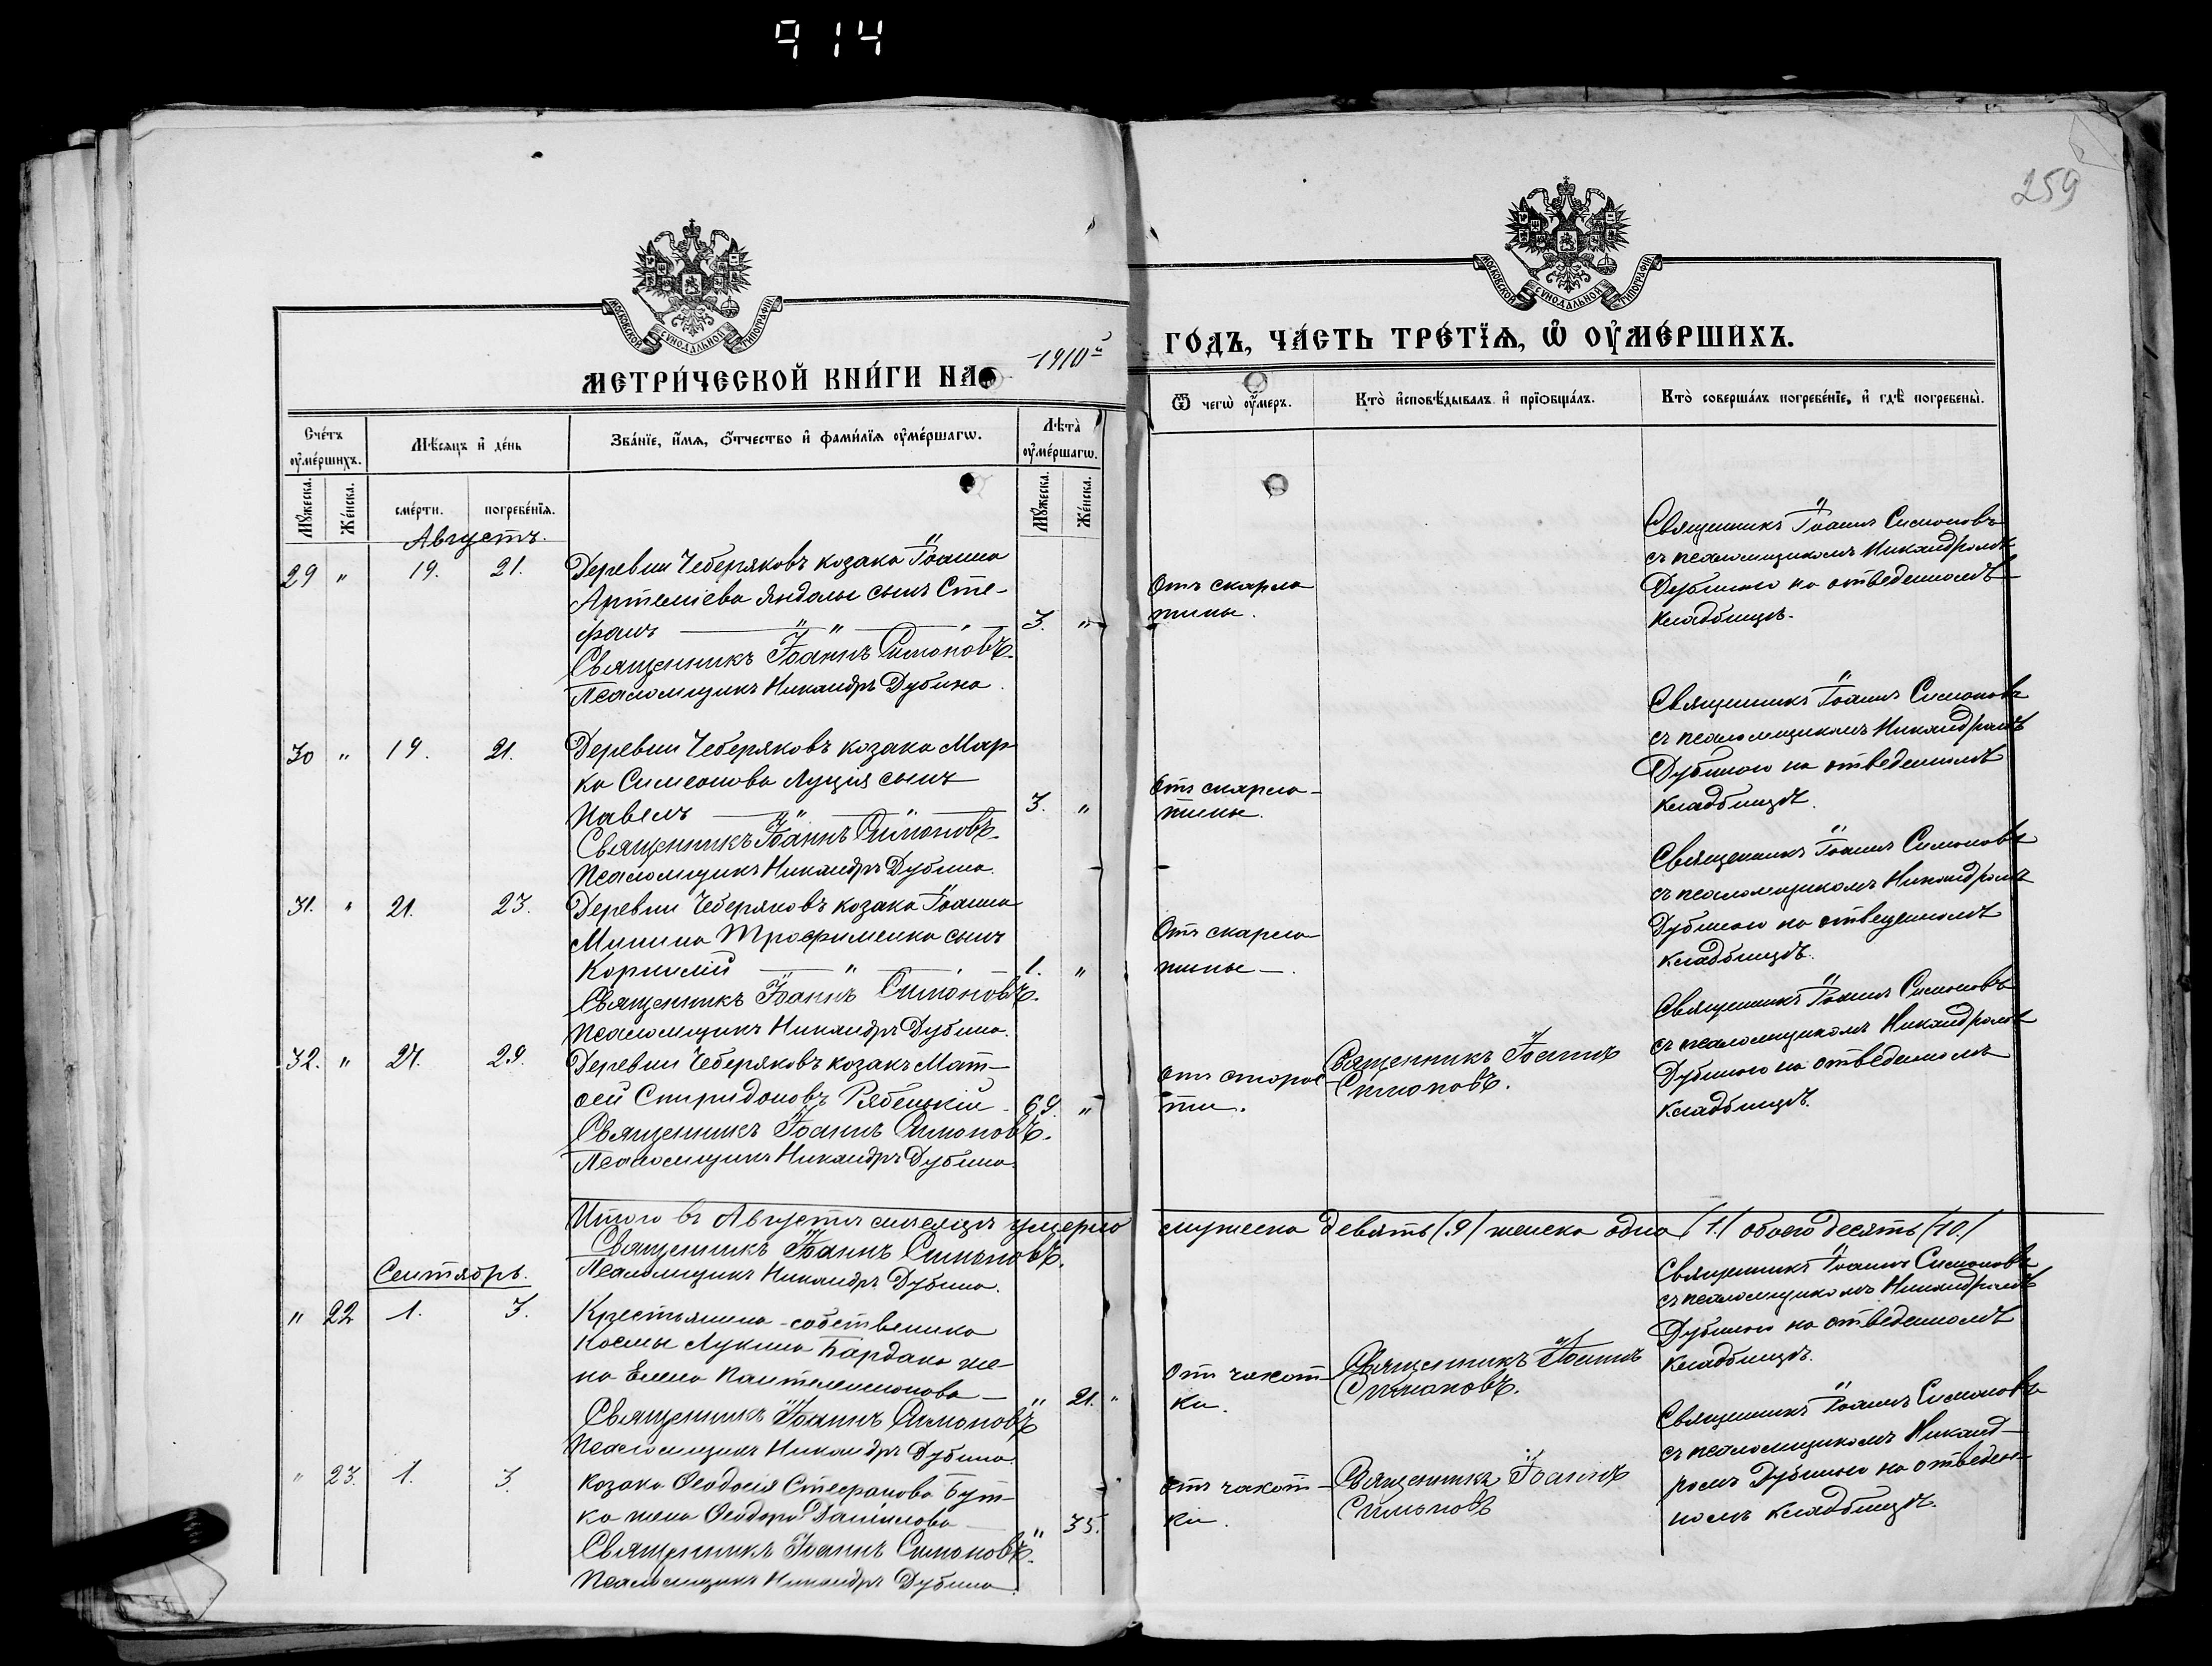 914
259
МОСКОВСКОЙ СѴНОДАЛЬНОЙ ТИПОГРАФІИ
МОСКОВСКОЙ СѴНОДАЛЬНОЙ ТИПОГРАФІИ
МЕТРИ́ЧЕСКОЙ КНИ́ГИ НА 1910й
ГО́ДЪ, ЧА́СТЬ ТРЕ́ТЇѦ, Ѡ҆ ОУ҆МЕ́РШИХЪ.
Сче́тъ оу҆ме́ршихъ.
Мꙋ́жеска.
Же́нска.
Мѣ́сяцъ и҆ де́нь
сме́рти.
погребе́нїѧ.
Зва́нїе, и҆́мѧ, ѻ҆́тчество и҆ фами́лїѧ оу҆ме́ршагѡ.
Лѣта̀ оу҆ме́ршагѡ.
Мꙋ́жеска.
Же́нска.
Ѿ чегѡ̀ оу҆́меръ.
Кто̀ и҆сповѣ́дывалъ и҆ прїѻбща́лъ.
Кто̀ соверша́лъ погребе́нїе, и҆ гдѣ̀ погребены̀.
Августъ.
29 " 19. 21. Деревни Чеберяковъ козака Іоанна
Артеміева Яндолы сынъ Сте-
фанъ — " — 3. "
Священникъ Іоаннъ Симоновъ.
Псаломщикъ Никандръ Дубина.
Отъ скарла
тины.
Священникъ Іоаннъ Симоновъ
съ псаломщикомъ Никандромъ
Дубиною на отведенномъ
кладбищѣ.
30 " 19. 21. Деревни Чеберяковъ козака Мар
ка Симеонова Луція сынъ
Павелъ — " — 3. "
Священникъ Іоаннъ Симоновъ.
Псаломщикъ Никандръ Дубина.
Отъ скарла-
тины.
Священникъ Іоаннъ Симоновъ
съ псаломщикомъ Никандромъ
Дубиною на отведенномъ
кладбищѣ.
31. " 21. 23. Деревни Чеберяковъ козака Іоанна
Минина Трофименка сынъ
Корнилій — " — 1. "
Священникъ Іоаннъ Симоновъ.
Псаломщикъ Никандръ Дубина.
Отъ скарла
тины —.
Священникъ Іоаннъ Симоновъ
съ псаломщикомъ Никандромъ
Дубиною на отведенномъ
кладбищѣ.
32. " 27. 29. Деревни Чеберяковъ козакъ Мат-
ѳей Спиридоновъ Рябенькій 69. "
Священникъ Іоаннъ Симоновъ.
Псаломщикъ Никандръ Дубина.
Отъ старос
ти.
Священникъ Іоаннъ
Симоновъ.
Священникъ Іоаннъ Симоновъ
съ псаломщикомъ Никандромъ
Дубиною на отведенномъ
кладбищѣ.
Итого въ Августѣ мѣсяцѣ умерло мужеска девять /9/ женска одна /1/ обоего десять /10./
Священникъ Іоаннъ Симоновъ.
Псаломщикъ Никандръ Дубина.
Сентябрь.
" 22 1. 3. Крестьянина-собственника
Космы Лукина Бардака же-
на Елена Пантелеимонова — " 21. "
Священникъ Іоаннъ Симоновъ
Псаломщикъ Никандръ Дубина.
Отъ чахот-
ки.
Священникъ Іоаннъ
Симоновъ.
Священникъ Іоаннъ Симоновъ
съ псаломщикомъ Никандромъ
Дубиною на отведенномъ
кладбищѣ.
" 23. 1. 3. Козака Ѳеодосія Стефанова Бут-
ка жена Ѳеодора Даніилова — " 35.
Священникъ Іоаннъ Симоновъ.
Псаломщикъ Никандръ Дубина.
Отъ чахот-
ки.
Священникъ Іоаннъ
Симоновъ
Священникъ Іоаннъ Симоновъ
съ псаломщикомъ Никанд-
ромъ Дубиною на отведен-
номъ кладбищѣ.